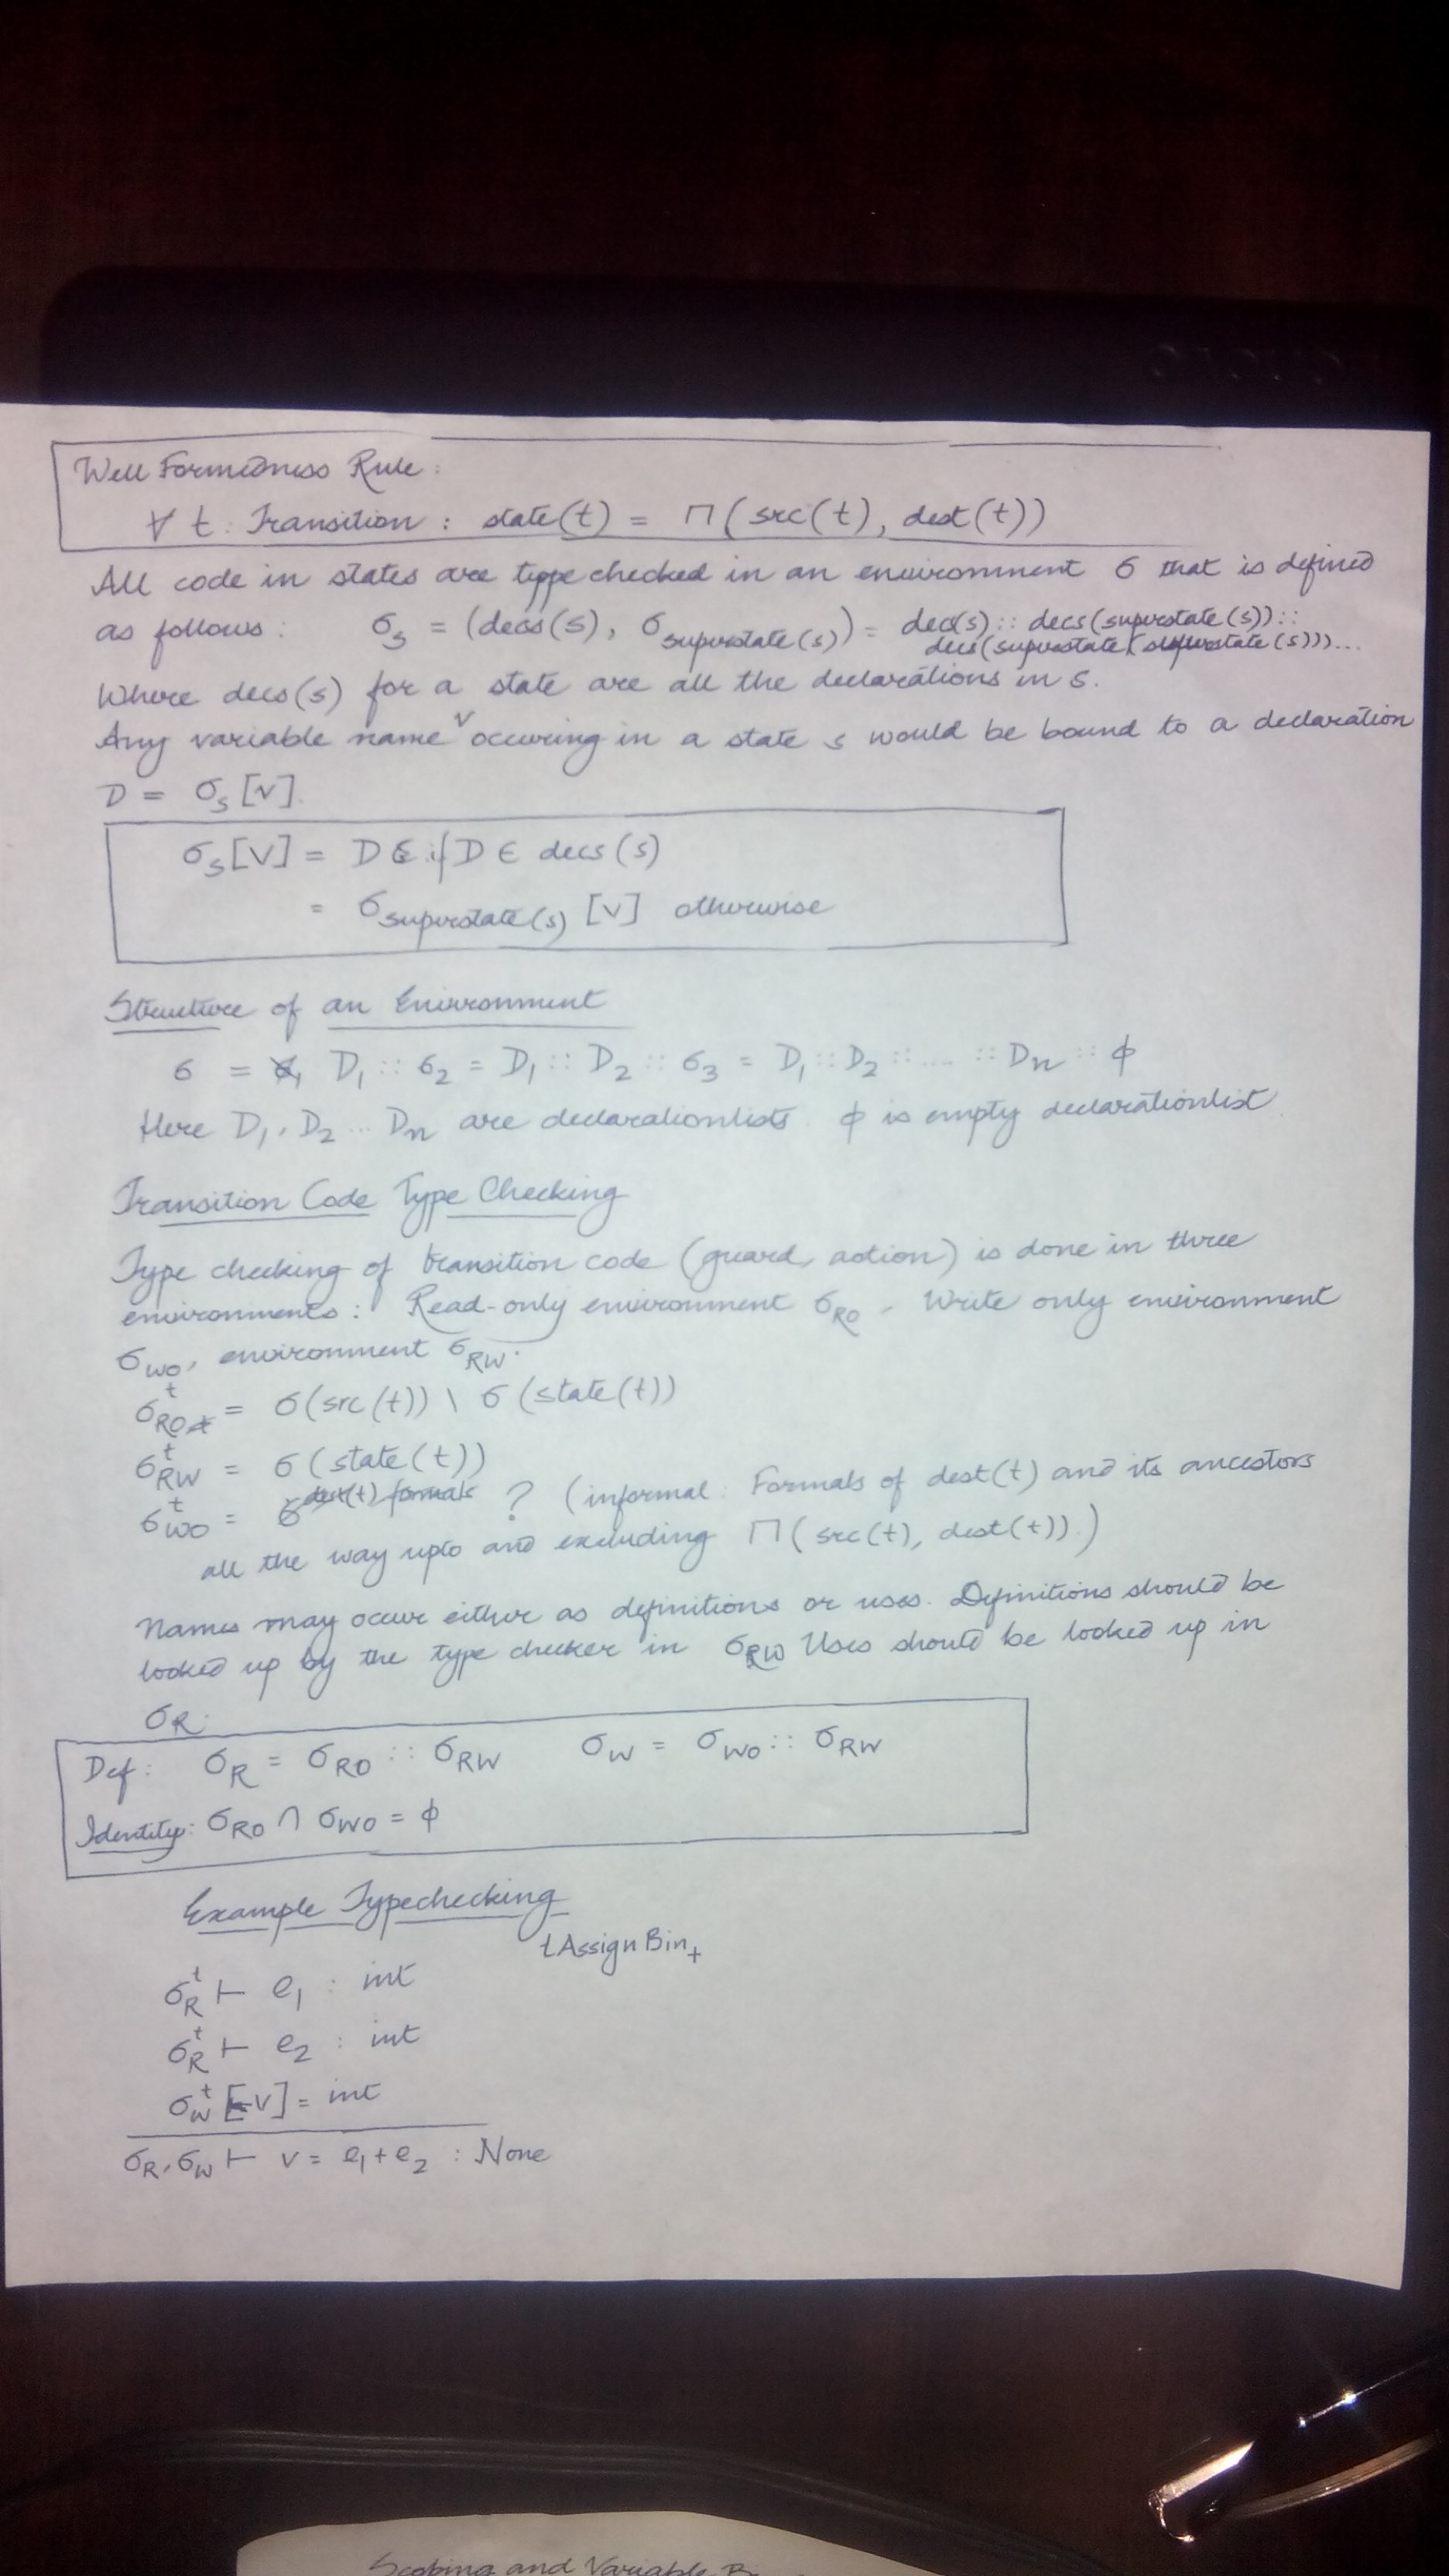 Well Formedness Rule:
∀ t: Transition : state(t) = ⊓(src(t), dest(t))
All code in states are type checked in an environment σ that is defined
as follows: σ_s = (decs(s), σ_superstate(s)) = decs(s) :: decs(superstate(s)) ::
decs(superstate(superstate(s)))...
Where decs(s) for a state are all the declarations in s.
Any variable name v occuring in a state s would be bound to a declaration
D = σ_s[v].
σ_s[V] = D if D ∈ decs(s)
= σ_superstate(s) [v] otherwise
Structure of an Environment
σ = D₁ :: σ₂ = D₁ :: D₂ :: σ₃ = D₁ :: D₂ :: .... :: Dn :: ϕ
Here D₁, D₂ ... Dn are declarationlists. ϕ is empty declarationlist.
Transition Code Type Checking
Type checking of transition code (guard, action) is done in three
environments: Read-only environment σ_RO, Write only environment
σ_WO, environment σ_RW.
σ^t_RO = σ(src(t)) \ σ(state(t))
σ^t_RW = σ(state(t))
σ^t_WO = ? (informal: Formals of dest(t) and its ancestors
all the way upto and excluding ⊓(src(t), dest(t)).)
Names may occur either as definitions or uses. Definitions should be
looked up by the type checker in σ_RW Uses should be looked up in
σ_R.
Def: σ_R = σ_RO :: σ_RW σ_W = σ_WO :: σ_RW
Identity: σ_RO ∩ σ_WO = ϕ
Example Typechecking
tAssignBin₊
σ^t_R ⊢ e₁ : int
σ^t_R ⊢ e₂ : int
σ^t_W [v] = int
σ_R, σ_W ⊢ v = e₁ + e₂ : None
Scoping and Variable